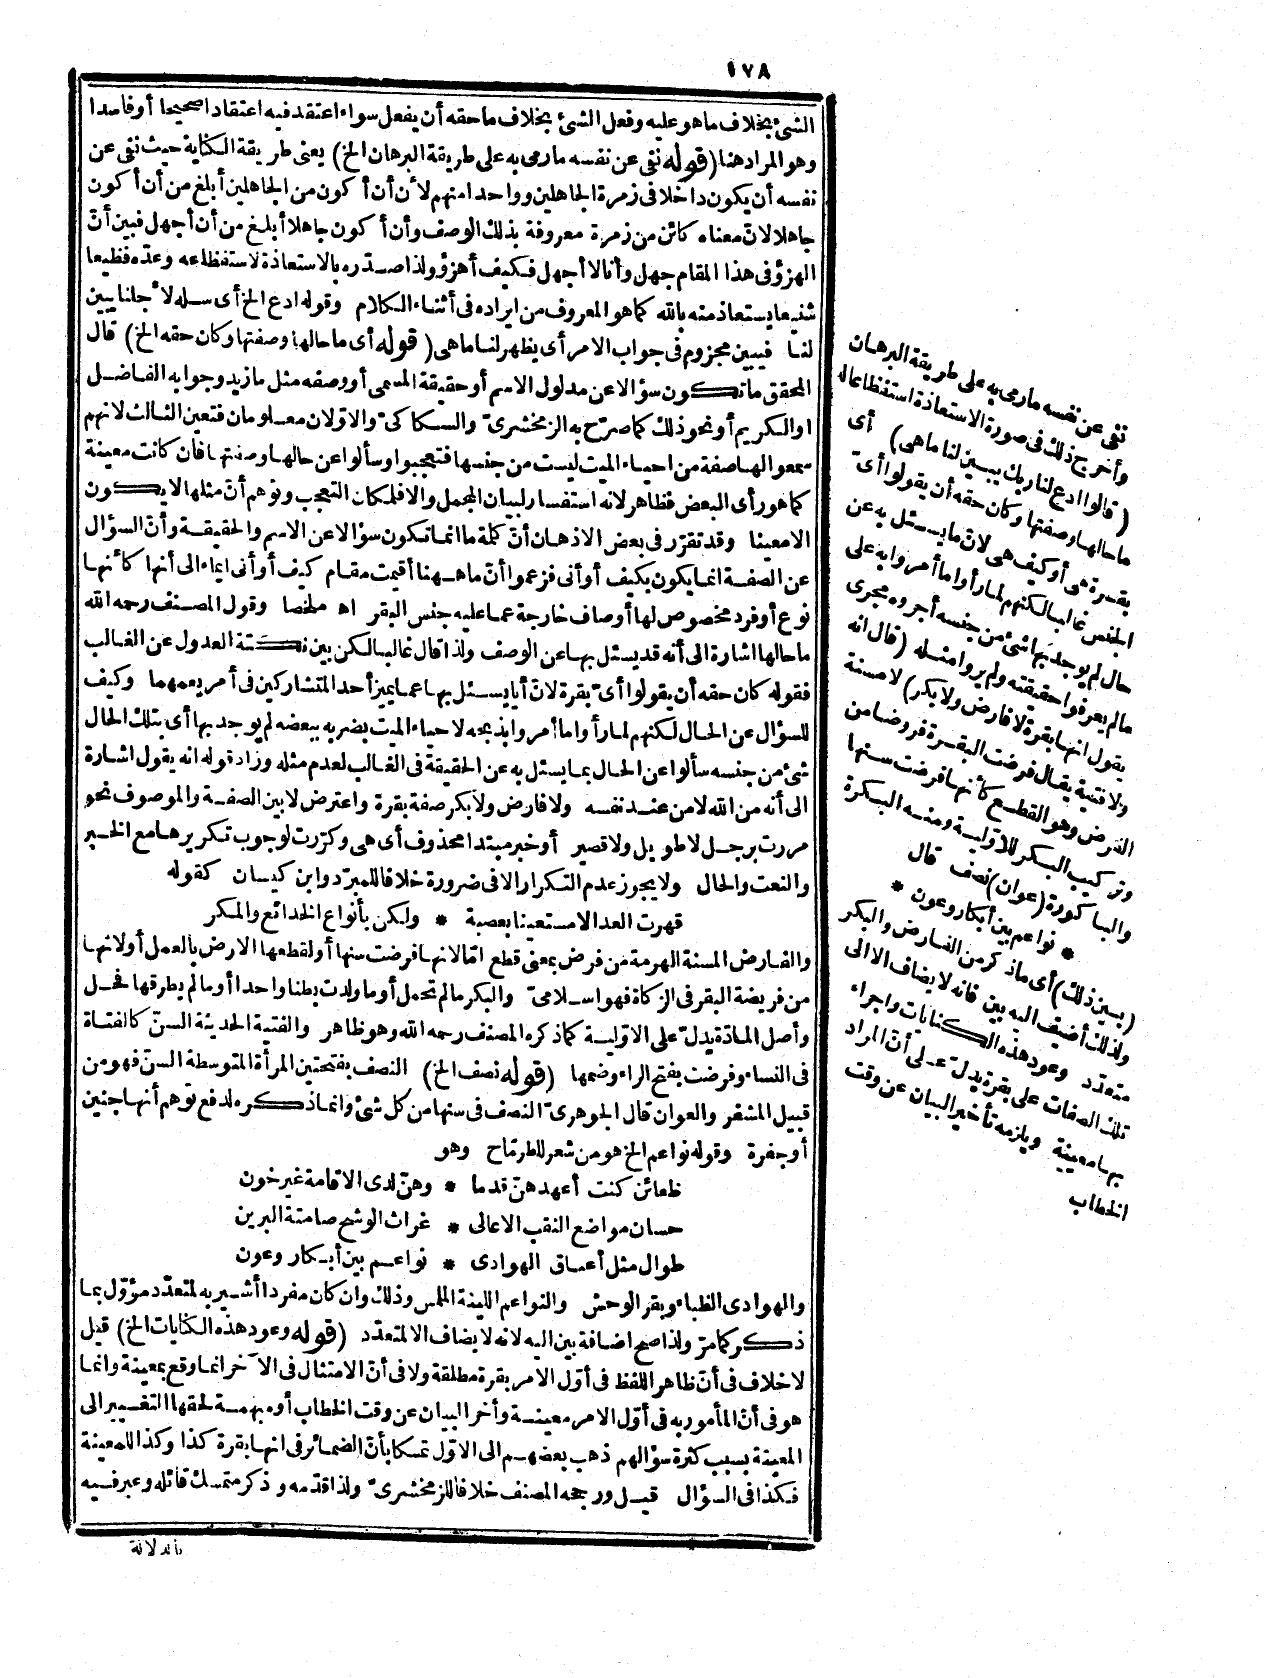 ١٧٨
الشئ بخلاف ما هو عليه وفعل الشئ بخلاف ما حقه أن يفعل سواء اعتقد فيه اعتقادا صحيحا أو فاسدا
وهو المراد هنا (قوله نفى عن نفسه ما رمى به على طريقة البرهان الخ) يعنى طريقة الكناية حيث نفى عن
نفسه أن يكون داخلا فى زمرة الجاهلين وواحدا منهم لأن أن أكون من الجاهلين أبلغ من أن أكون
جاهلا لانّ معناه كائن من زمرة معروفة بذلك الوصف وأن أكون جاهلا أبلغ من أن أجهل فبين أنّ
الهزؤ فى هذا المقام جهل وأنا لا أجهل فكيف أهزؤ ولذا صدّره بالاستعاذة لاستفظاعه وعدّه فظيعا
شنيعا يستعاذ منه بالله كما هو المعروف من ايراده فى أثناء الكلام وقوله ادع الخ أى سله لأجلنا يبين
لنا فيبين مجزوم فى جواب الامر أى يظهر لنا ما هى (قوله أى ما حالها وصفتها وكان حقه الخ) قال
المحقق ما تكون سؤالا عن مدلول الاسم أو حقيقة المسمى أو وصفه مثل ما زيد وجوابه الفاضل
او الكريم أو نحو ذلك كما صرّح به الزمخشرىّ والسكاكىّ والاوّلان معلومان فتعين الثالث لانهم
سمعوا لها صفة من احياء الميت ليست من جنسها فتعجبوا وسألوا عن حالها وصفتها فان كانت معينة
كما هو رأى البعض فظاهر لانه استفسار لبيان المجمل والافلمكان التعجب وتوهم أنّ مثلها لا يكون
الا معينا وقد تقرّر فى بعض الاذهان أنّ كلمة ما انما تكون سؤالا عن الاسم والحقيقة وأنّ السؤال
عن الصفة انما يكون بكيف أو أنى فزعموا أنّ ما ههنا أقيمت مقام كيف أو أنى ايماء الى أنها كأنها
نوع أو فرد مخصوص لها أوصاف خارجة عما عليه جنس البقر اه ملخصا وقول المصنف رحمه الله
ما حالها اشارة الى أنه قد يسئل بها عن الوصف ولذا قال غالبا لكن بين نكتة العدول عن الغالب
فقوله كان حقه أن يقولوا أىّ بقرة لانّ أيا يسئل بها عما يميز أحد المتشاركين فى أمر يعمهما وكيف
للسؤال عن الحال لكنهم لما رأوا ما أمروا بذبحه لاحياء الميت بضربه ببعضه لم يوجد بها أى بتلك الحال
شئ من جنسه سألوا عن الحال بما يسئل به عن الحقيقة فى الغالب لعدم مثله وزاد قوله انه يقول اشارة
الى أنه من الله لا من عند نفسه ولا فارض ولا بكر صفة بقرة واعترض لا بين الصفة والموصوف نحو
مررت برجل لا طويل ولا قصير أو خبر مبتدا محذوف أى هى وكرّرت لوجوب تكريرها مع الخبر
والنعت والحال ولا يجوز عدم التكرار الا فى ضرورة خلافا للمبرّد وابن كيسان كقوله
قهرت العدا لا مستعينا بعصبة * ولكن بأنواع الخدائع والمكر
والفارض المسنة الهرمة من فرض بمعنى قطع امّا لانها فرضت سنها أو لقطعها الارض بالعمل أو لانها
من فريضة البقر فى الزكاة فهو اسلامىّ والبكر ما لم تحمل أو ما ولدت بطنا واحدا أو ما لم يطرقها فحل
وأصل المادّة يدلّ على الاوّلية كما ذكره المصنف رحمه الله وهو ظاهر والفتية الحديثة السنّ كالفتاة
فى النساء وفرضت بفتح الراء وضمها (قوله نصف الخ) النصف بفتحتين المرأة المتوسطة السنّ فهو من
قبيل المشفر والعوان قال الجوهرىّ النصف فى سنها من كل شئ وانما ذكره لدفع توهم أنها جنين
أو جفرة وقوله نواعم الخ هو من شعر للطرمّاح وهو
ظعائن كنت أعهدهنّ قدما * وهنّ لدى الاقامة غير خون
حسان مواضع النقب الاعالى * غراث الوشح صامتة البرين
طوال مثل أعناق الهوادى * نواعم بين أبكار وعون
والهوادى الظباء وبقر الوحش والنواعم اللينة الملمس وذلك وان كان مفردا أشير به لمتعدّد مؤوّل بما
ذكر كما مرّ ولذا صح اضافة بين اليه لانه لا يضاف الا لمتعدّد (قوله وعود هذه الكنايات الخ) قيل
لا خلاف فى أنّ ظاهر اللفظ فى أوّل الامر بقرة مطلقة ولا فى أنّ الامتثال فى الآخر انما وقع بمعينة وانما
هو فى أنّ المأمور به فى أوّل الامر معينة وأخر البيان عن وقت الخطاب أو مبهمة لحقها التغيير الى
المعينة بسبب كثرة سؤالهم ذهب بعضهم الى الاوّل تمسكا بأنّ الضمائر فى انها بقرة كذا وكذا للمعينة
فكذا فى السؤال قيل ورجحه المصنف خلافا للزمخشرىّ ولذا قدّمه وذكر متمسك قائله وعبر فيه
بالدلالة
نفى عن نفسه ما رمى به على طريقة البرهان
وأخرج ذلك فى صورة الاستعاذة استفظاعا له
(قالوا ادع لنا ربك يبين لنا ما هى) أى
ما حالها وصفتها وكان حقه أن يقولوا أىّ
بقرة هى أو كيف هى لانّ ما يسئل به عن
الجنس غالبا لكنهم لما رأوا ما أمروا به على
حال لم يوجد بها شئ من جنسه أجروه مجرى
ما لم يعرفوا حقيقته ولم يروا مثله (قال انه
يقول انها بقرة لا فارض ولا بكر) لا مسنة
ولا فتية يقال فرضت البقرة فروضا من
الفرض وهو القطع كأنها فرضت سنها
وتركيب البكر للاوّلية ومنه البكرة
والباكورة (عوان) نصف قال
* نواعم بين أبكار وعون *
(بين ذلك) أى ما ذكر من الفارض والبكر
ولذلك أضيف اليه بين فانه لا يضاف الا الى
متعدّد وعود هذه الكنايات واجراء
تلك الصفات على بقرة يدلّ على أنّ المراد
بها معينة ويلزمه تأخير البيان عن وقت
الخطاب